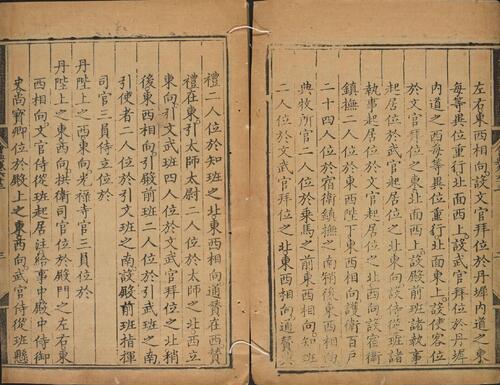 左右東西相向設文官拜位於丹墀內道之東
每等異位重行北面西上設武官拜位於丹墀
內道之西每等異位重行北面東上設使客位
於文官拜位之東北面西上設殿前班諸執事
起居位於武官起居位之東北向設侍從班諸
執事起居位於文官起居位之北西向設宿衛
鎮撫二人位於東西陛下東西相向護衛百戶
二十四人位於宿衛鎮撫之南稍後東西相向
典牧所官二人位於乘馬之前東西相向知班
二人位於文武官拜位之北東西相向通贊
禮二人位於知班之北東西相向通贊在西贊
禮在東引太師太尉二人位於太師之北西立
東向引文武班四人位於文武官拜位之北稍
後東西相向引殿前班二人位於引武班之南
引使者二人位於引文班之南設殿前班指揮
司官三員侍立位於
丹陛上之西東向光祿寺官三員位於
丹陛上之東西向拱衛司官位於殿門之左右東
西相向文官侍從班起居注給事中殿中侍御
史尚寶卿位於殿上之東西向武官侍從班懸